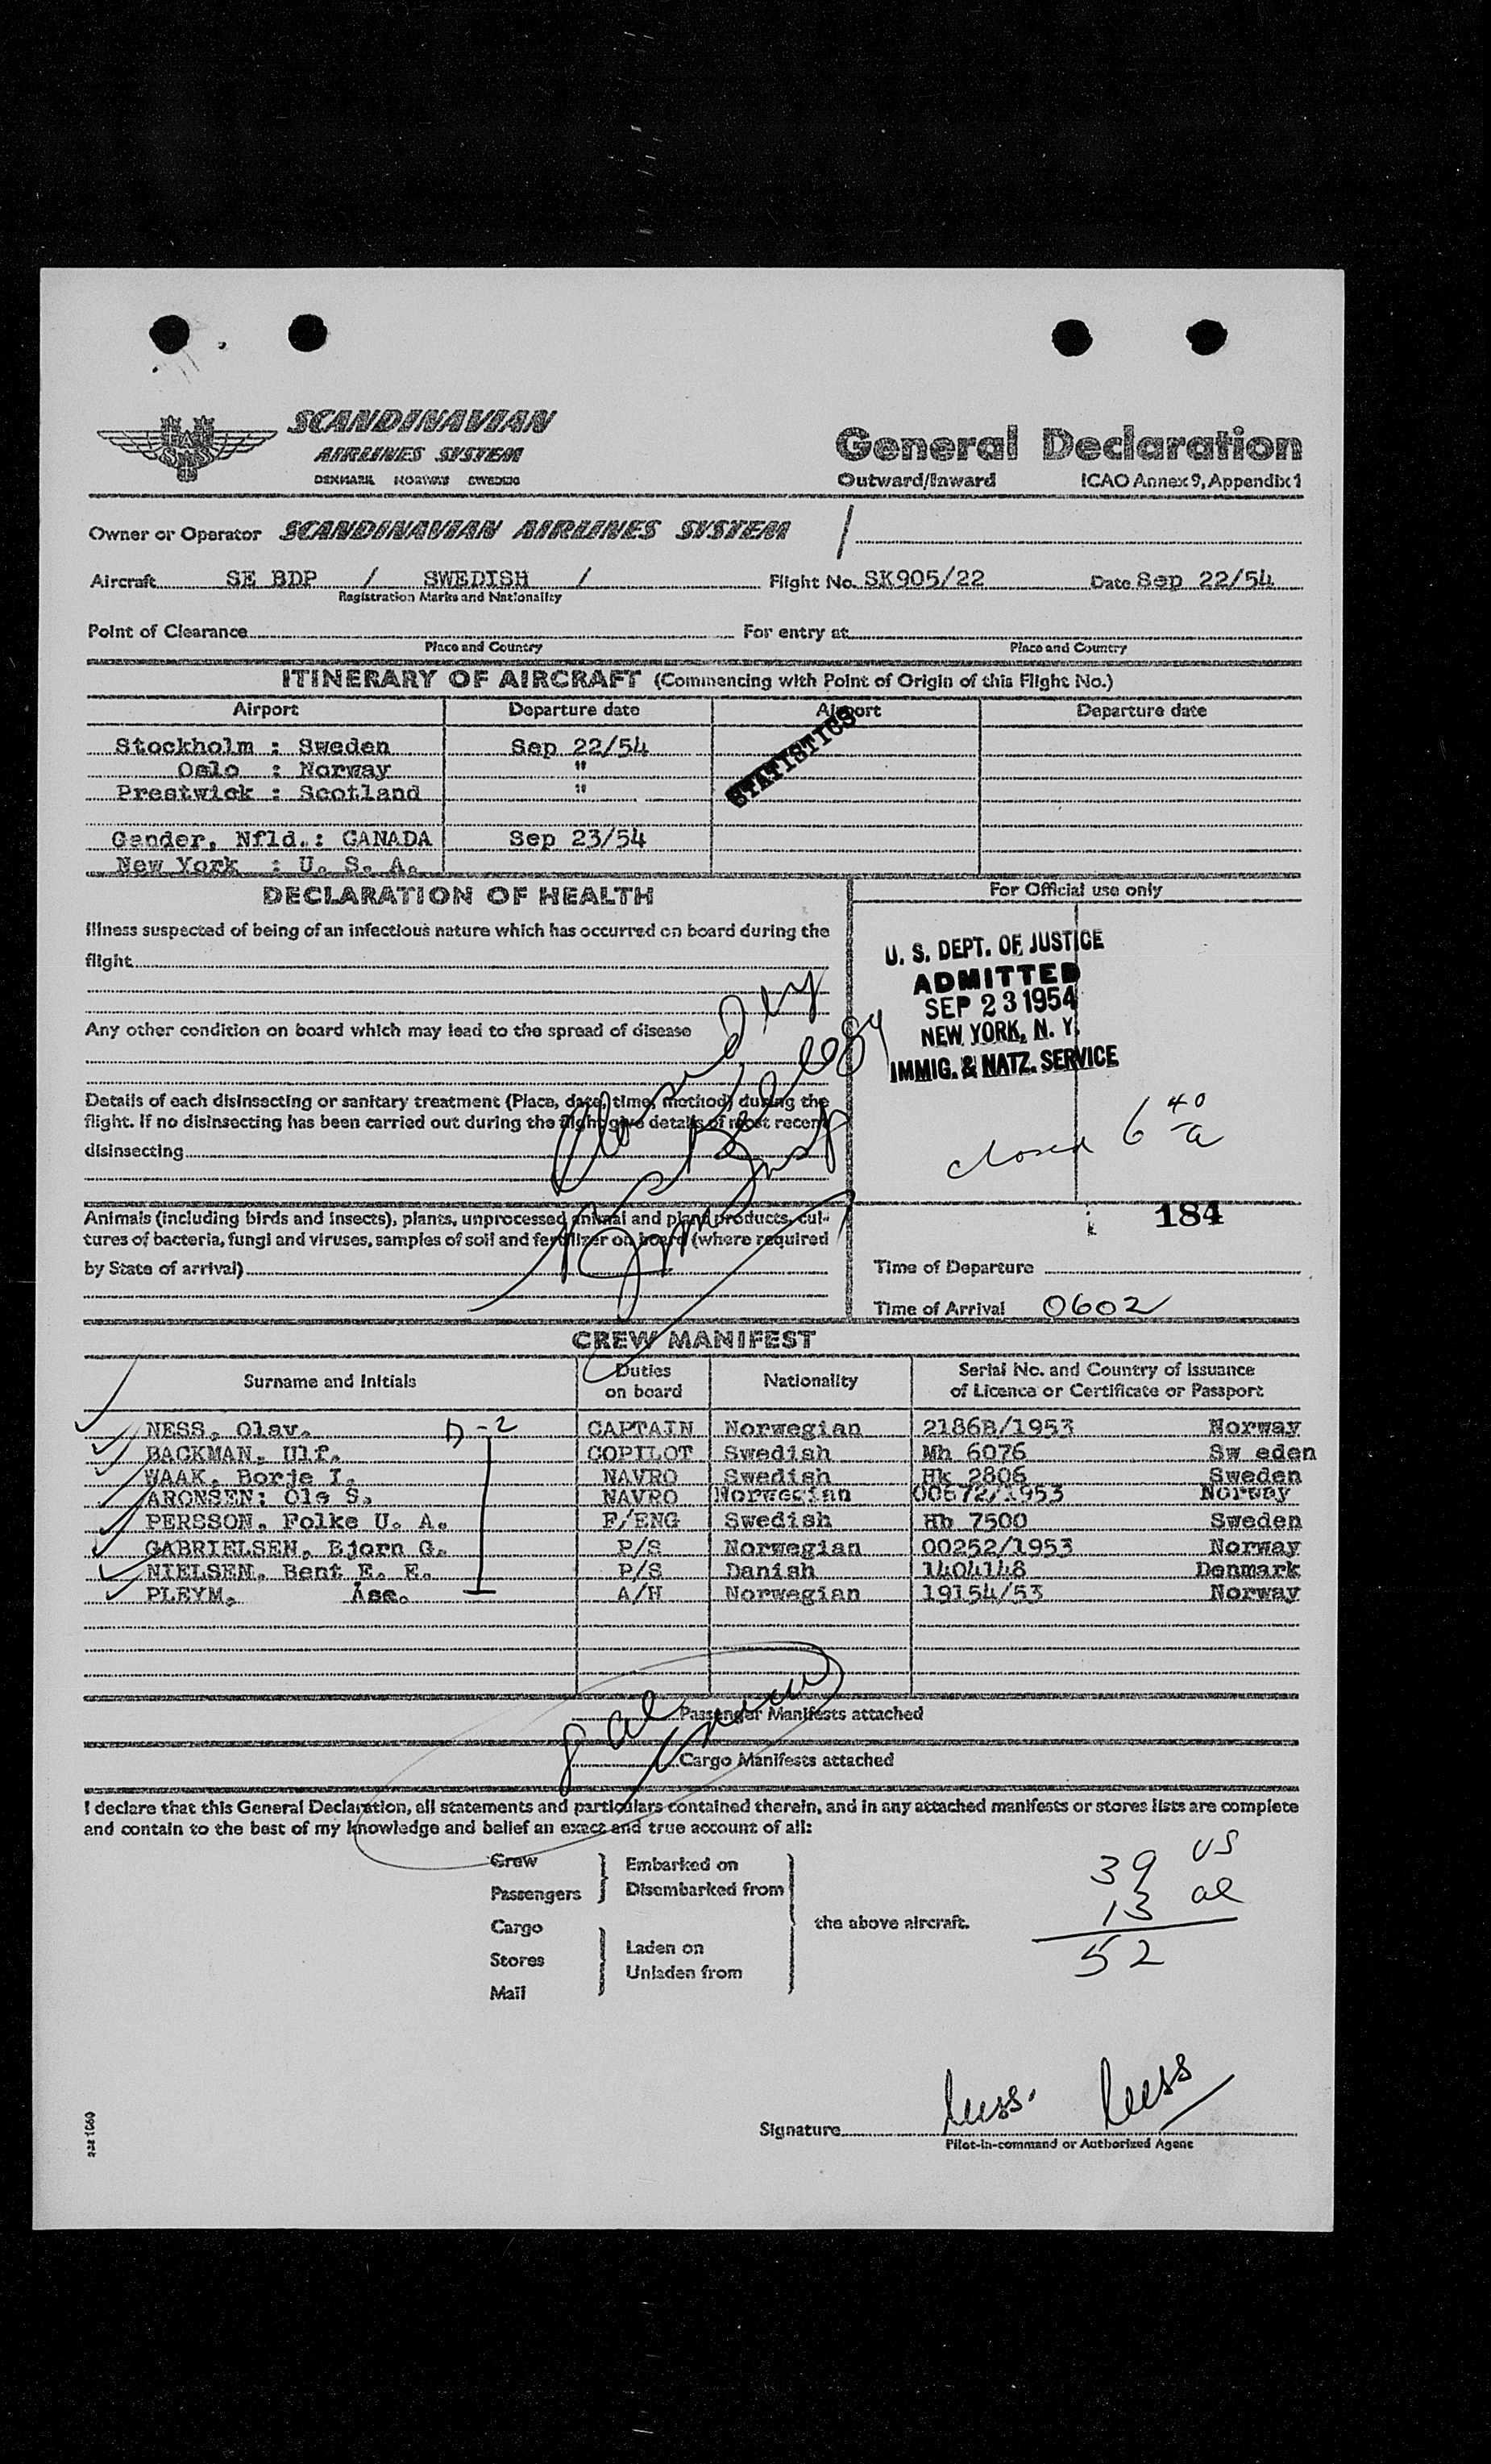 SCANDINAVIAN
AIRLINES SYSTEM
DENMARK NORWAY SWEDEN
General Declaration
Outward/Inward ICAO Annex 9, Appendix 1
Owner or Operator SCANDINAVIAN AIRLINES SYSTEM /
Aircraft SE BDP / SWEDISH / Flight No. SK905/22 Date Sep 22/54
Registration Marks and Nationality
Point of Clearance For entry at
Place and Country Place and Country
ITINERARY OF AIRCRAFT (Commencing with Point of Origin of this Flight No.)
Airport Departure date Airport Departure date
STATISTICS
Stockholm : Sweden Sep 22/54
Oslo : Norway "
Prestwick : Scotland "
Gander, Nfld.: CANADA Sep 23/54
New York : U. S. A.
DECLARATION OF HEALTH
Illness suspected of being of an infectious nature which has occurred on board during the
flight
Any other condition on board which may lead to the spread of disease
Details of each disinsecting or sanitary treatment (Place, date, time, method) during the
flight. If no disinsecting has been carried out during the flight give details of most recent
disinsecting
Animals (including birds and insects), plants, unprocessed animal and plant products, cul-
tures of bacteria, fungi and viruses, samples of soil and fertilizer on board (where required
by State of arrival)
For Official use only
U. S. DEPT. OF JUSTICE
ADMITTED
SEP 23 1954
NEW YORK, N. Y.
IMMIG. & NATZ. SERVICE
closed 6 40 a
184
Time of Departure
Time of Arrival 0602
CREW MANIFEST
Surname and Initials Duties on board Nationality Serial No. and Country of Issuance of Licence or Certificate or Passport
NESS, Olav. D-2 CAPTAIN Norwegian 2186B/1953 Norway
BACKMAN, Ulf. COPILOT Swedish Mh 6076 Sw eden
WAAK, Borje I. NAVRO Swedish Hk 2806 Sweden
ARONSEN: Ole S. NAVRO Norwegian 00572/1953 Norway
PERSSON, Folke U. A. F/ENG Swedish Hb 7500 Sweden
GABRIELSEN, Bjorn G. P/S Norwegian 00252/1953 Norway
NIELSEN, Bent E. E. P/S Danish 1404148 Denmark
PLEYM, Åse. A/H Norwegian 19154/53 Norway
8 al
Passenger Manifests attached
Cargo Manifests attached
I declare that this General Declaration, all statements and particulars contained therein, and in any attached manifests or stores lists are complete
and contain to the best of my knowledge and belief an exact and true account of all:
Crew
Passengers
Embarked on
Disembarked from
Cargo
Stores
Mail
Laden on
Unladen from
the above aircraft.
39 US
13 al
52
Signature
Pilot-in-command or Authorized Agent